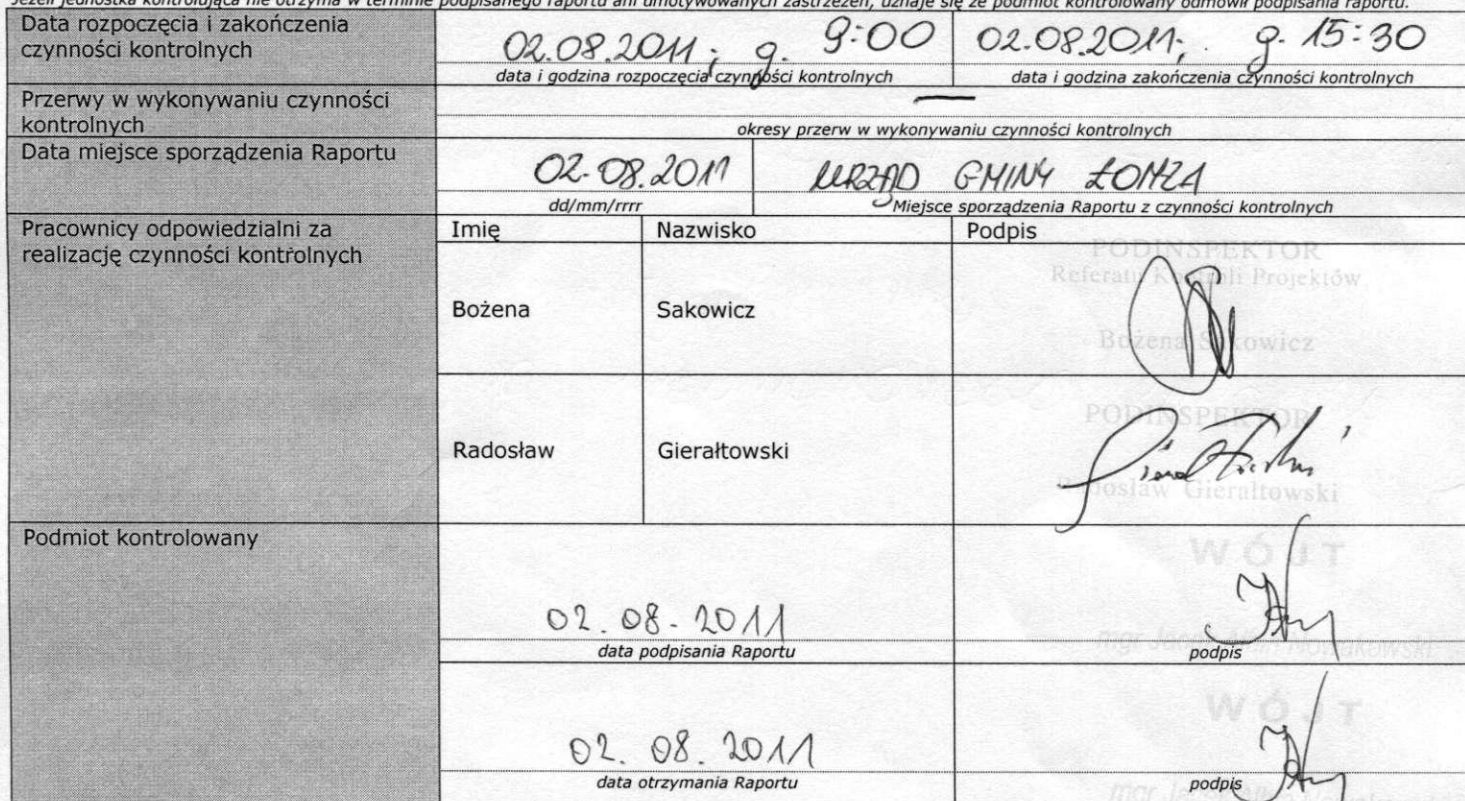 Jeżeli jednostka kontrolująca nie otrzyma w terminie podpisanego raportu ani umotywowanych zastrzeżeń, uznaje się że podmiot kontrolowany odmówił podpisania raportu.
Data rozpoczęcia i zakończenia
czynności kontrolnych
02.08.2011; g. 9:00
data i godzina rozpoczęcia czynności kontrolnych
02.08.2011; g. 15:30
data i godzina zakończenia czynności kontrolnych
Przerwy w wykonywaniu czynności
kontrolnych
—
okresy przerw w wykonywaniu czynności kontrolnych
Data miejsce sporządzenia Raportu
02.08.2011
dd/mm/rrrr
URZĄD GMINY ŁOMŻA
Miejsce sporządzenia Raportu z czynności kontrolnych
Pracownicy odpowiedzialni za
realizację czynności kontrolnych
Imię Nazwisko Podpis
PODINSPEKTOR
Referatu Kontroli Projektów
Bożena Sakowicz
Bożena Sakowicz
PODINSPEKTOR
Radosław Gierałtowski
Radosław Gierałtowski
Podmiot kontrolowany
WÓJT
02.08.2011
data podpisania Raportu
mgr Jacek Nowakowski
podpis
WÓJT
02.08.2011
data otrzymania Raportu
podpis
mgr Jacek